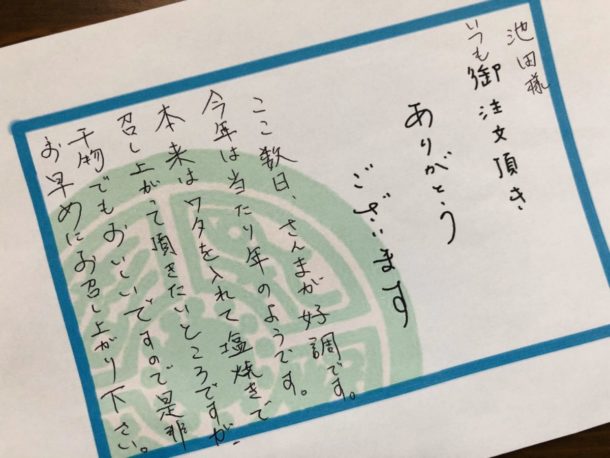 池田様
いつも御注文頂き
ありがとう
ございます
ここ数日、さんまが好調です。
今年は当たり年のようです。
本来はワタを入れて塩焼きで
召し上がって頂きたいところですが、
干物でもおいしいですので是非
お早めにお召し上がり下さい。